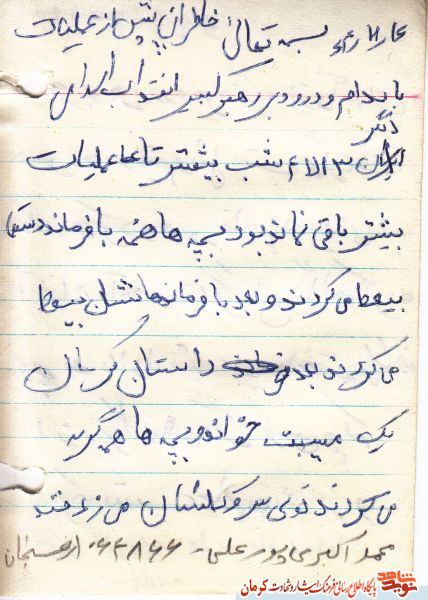 بسمه تعالی خاطراتی پیش از عملیات
با سلام و درود بر رهبر کبیر انقلاب ایران
اگر
شب بیشتر تا عملیات
بیشتر باقی نمانده بود بچه ها همه با فرمانده دستها
بیعت می کردند و بعد با فرماندهانشان بیعت
می کردند بعد داستان کربلا
یک مصیبت خوانده و بچه ها هم گریه
می کردند توی سر و کلشان می زدند
محمد اکبری پور علی از رفسنجان
نوید شاهد
پایگاه اطلاع رسانی فرهنگ ایثار و شهادت کرمان